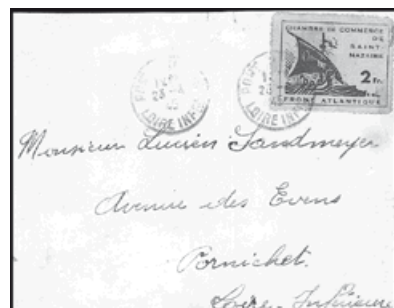 CHAMBRE DE COMMERCE
DE
SAINT-
NAZAIRE
2 Fr.
FRONT ATLANTIQUE
LOIRE INFRE
LOIRE INFRE
Monsieur Lucien Sandmeyer
Avenue des Evens
Pornichet.
Loire Inférieure